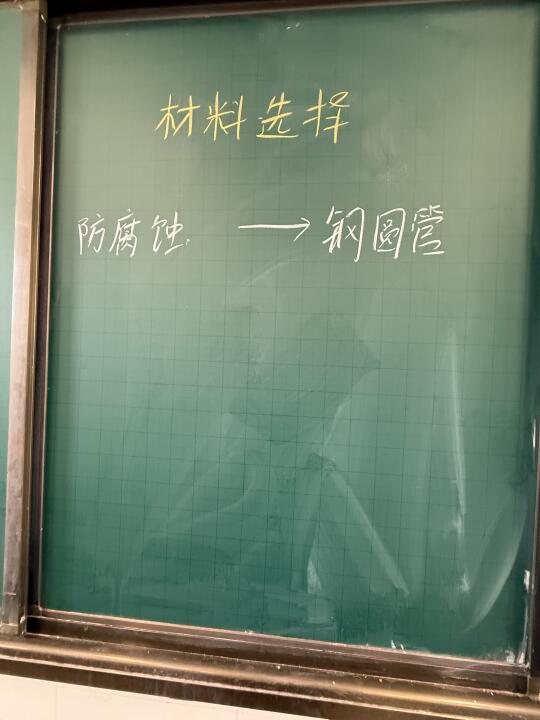 材料选择
防腐蚀 → 钢圆管